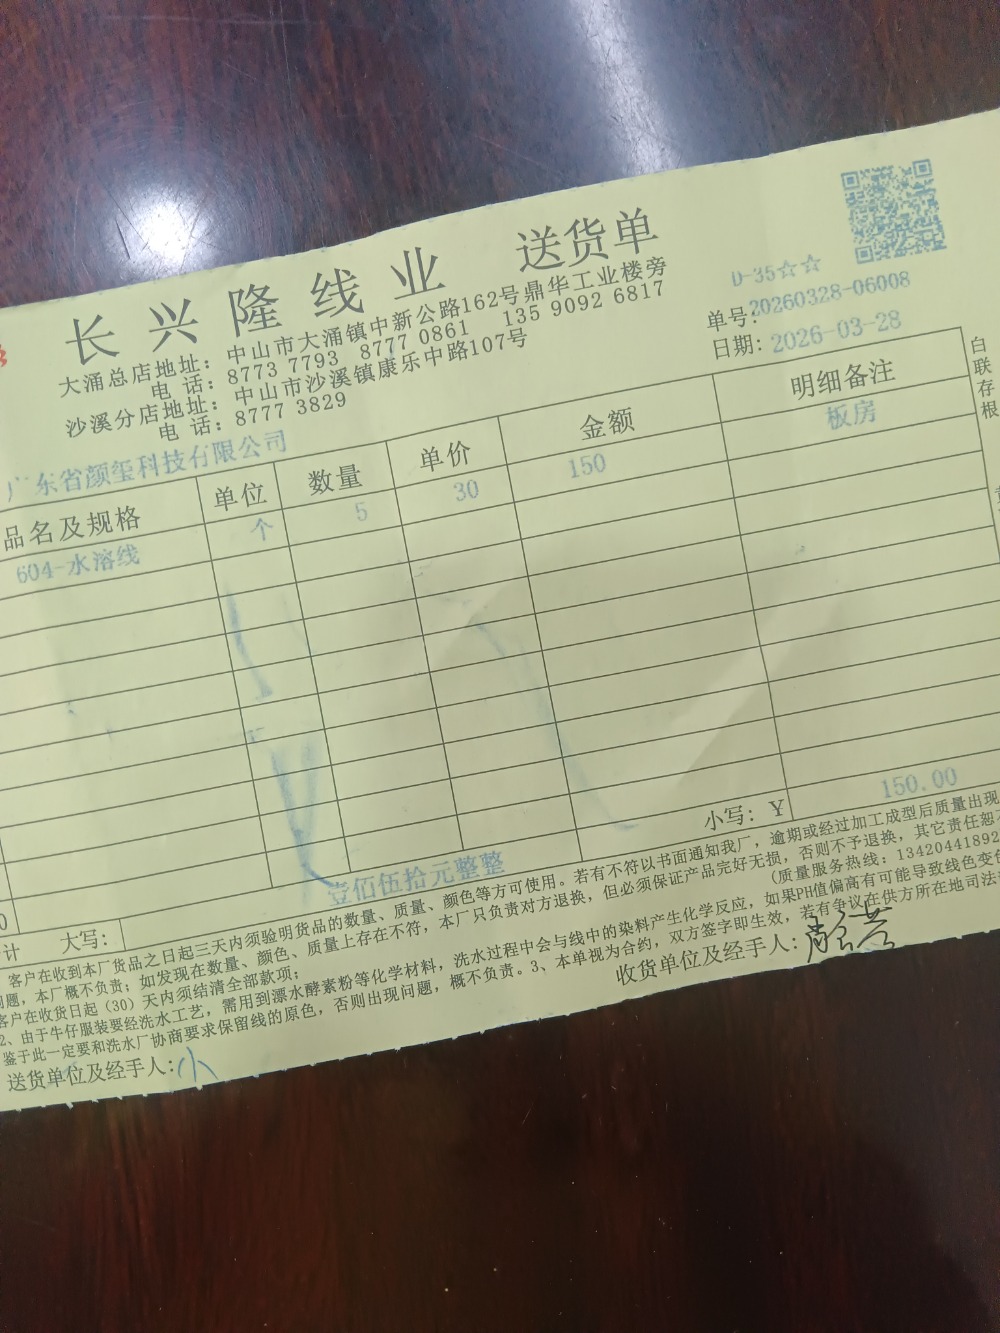 长兴隆线业 送货单
大涌总店地址：中山市大涌镇中新公路162号鼎华工业楼旁
电 话：8773 7793 8777 0861 135 9092 6817
沙溪分店地址：中山市沙溪镇康乐中路107号
电 话：8777 3829
D-35☆☆
单号：20260328-06008
日期：2026-03-28
广东省颜玺科技有限公司
品名及规格 单位 数量 单价 金额 明细备注
604-水溶线 个 5 30 150 板房
白联存根
计 大写： 壹佰伍拾元整整 小写：Y 150.00
客户在收到本厂货品之日起三天内须验明货品的数量、质量、颜色等方可使用。若有不符以书面通知我厂，逾期或经过加工成型后质量出现
问题，本厂概不负责；如发现在数量、颜色、质量上存在不符，本厂只负责对方退换，但必须保证产品完好无损，否则不予退换，其它责任恕
客户在收货日起（30）天内须结清全部款项； (质量服务热线：13420441892
2、由于牛仔服装要经洗水工艺，需用到漂水酵素粉等化学材料，洗水过程中会与线中的染料产生化学反应，如果PH值偏高有可能导致线色变
鉴于此一定要和洗水厂协商要求保留线的原色，否则出现问题，概不负责。3、本单视为合约，双方签字即生效，若有争议在供方所在地司法
送货单位及经手人：小 收货单位及经手人：